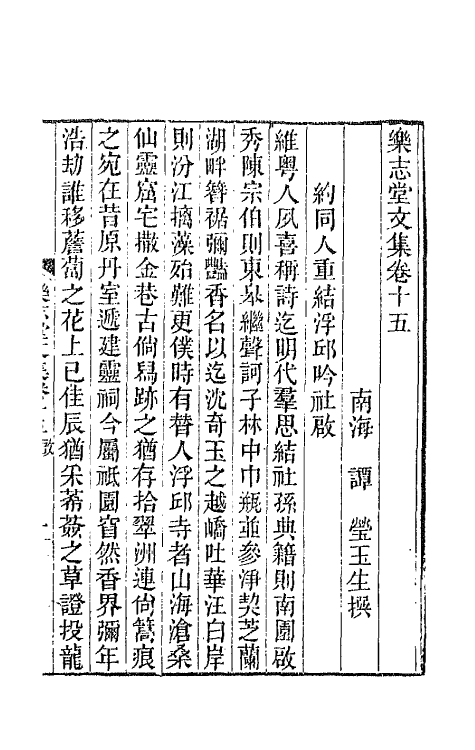 樂志堂文集卷十五
南海　譚　瑩玉生撰
約同人重結浮邱吟社啟
維粵人夙喜稱詩迄明代羣思結社孫典籍則南園啟
秀陳宗伯則東皋繼聲訶子林中巾瓶並參淨契芝蘭
湖畔簪裾彌豔香名以迄沈奇玉之越嶠吐華汪白岸
則汾江摛藻殆難更僕時有替人浮邱寺者山海滄桑
仙靈窟宅撒金巷古倘舄跡之猶存拾翠洲連尙篙痕
之宛在昔原丹室遞建靈祠今屬祗園窅然香界彌年
浩劫誰移薝蔔之花上巳佳辰猶采蕃薟之草證投龍
樂志堂文集卷十五 啟
一